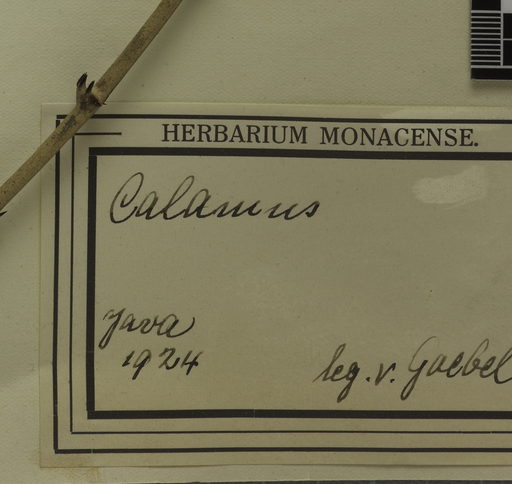 HERBARIUM MONACENSE.
Calamus
Java
1924
leg. v. Goebel